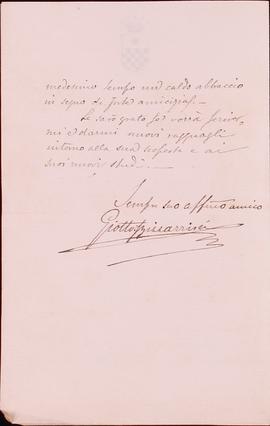 medesimo tempo un caldo abbraccio
in segno di forte amicizia. —
Le sarò grato se vorrà scriver-
mi e darmi nuovi ragguagli
intorno alla sua scoperta e ai
suoi nuovi studi. —
Sempre suo affmo amico